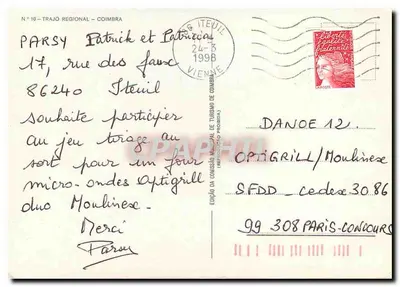 N° 16 - TRAJO REGIONAL - COIMBRA
PARSY Patrick et Patricia
17, rue des faux
86240 Iteuil
souhaite participer
au jeu tirage au
sort pour un four
micro-ondes Optigrill
duo Moulinex.
Merci
Parsy
86 ITEUIL
24-3
1998
VIENNE
DANOE 12.
OPTIGRILL/Moulinex
SFDD - Cedex 3086
99 308 PARIS-CONCOURS
EDIÇÃO DA COMISSÃO MUNICIPAL DE TURISMO DE COIMBRA